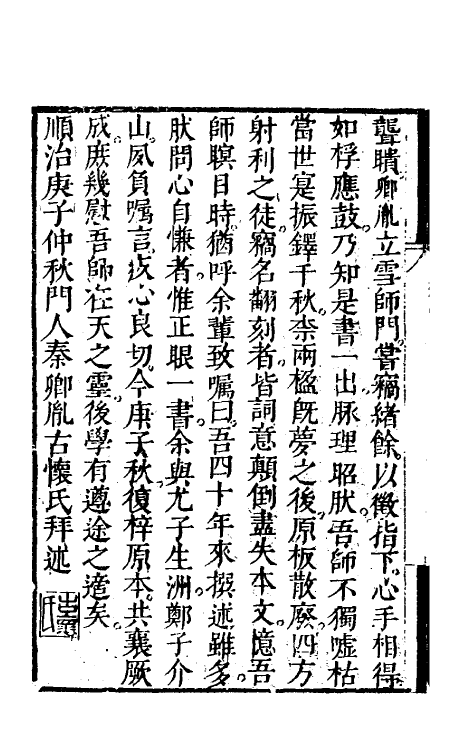 聾聵卿胤立雪師門嘗竊緒餘以徵指下心手相得
如桴應鼓乃知是書一出脉理昭肰吾師不獨噓枯
當世寔振鐸千秋柰兩楹旣夢之後原板散廢四方
射利之徒竊名翻刻者皆詞意顛倒盡失本文憶吾
師瞑目時猶呼余輩致囑曰吾四十年來撰述雖多
肰問心自慊者惟正眼一書余與尤子生洲鄭子介
山夙負囑言疚心良切今庚子秋復梓原本共襄厥
成庶幾慰吾師在天之靈後學有遵途之適矣
順治庚子仲秋門人秦卿胤古懷氏拜述